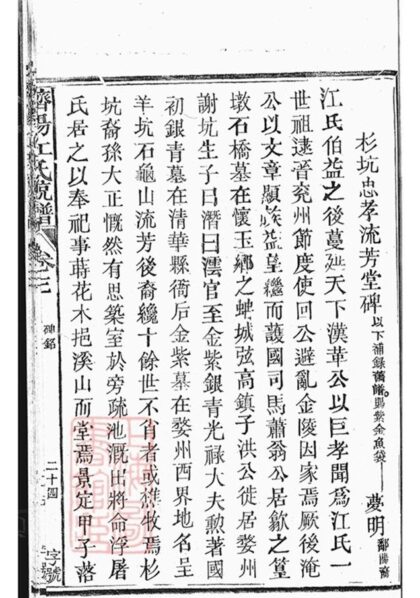 杉坑忠孝流芳堂碑 以下補錄舊譜賜紫金魚袋 夢明 鄱陽裔
江氏伯益之後蔓延天下漢華公以巨孝聞為江氏一
世祖逮晉兖州節度使回公避亂金陵因家焉厥後淹
公以文章顯族益望繼而護國司馬蕭翁公居歙之篁
墩石橋墓在懷玉鄉之蚺城弦高鎮子洪公徙居婺州
謝坑生子曰潛曰澐官至金紫銀青光祿大夫勲著國
初銀青墓在清華縣衙后金紫墓在婺州西界地名呈
羊坑石龜山流芳後裔纔十餘世不肖者或樵牧焉杉
坑裔孫大正慨然有思築室於旁疏池溉田將命浮屠
氏居之以奉祀事蒔花木挹溪山而堂焉景定甲子落
濟陽江氏統譜 卷之 碑銘 二十四 字號